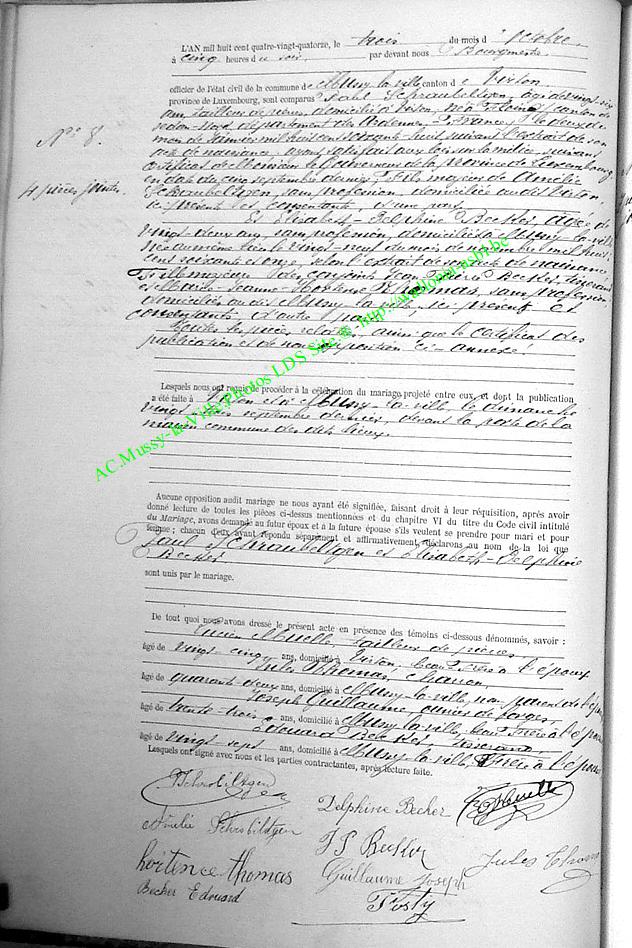 L'AN mil huit cent quatre-vingt-quatorze, le trois du mois d'octobre
à cinq heures du soir, par devant nous Bourgmestre
officier de l'état civil de la commune de Mussy-la-ville canton de Virton,
province de Luxembourg, sont comparus Paul Schraubeltgen, âgé de vingt-six
ans, tailleur de pierres, domicilié à Virton, né à canton de
Sedan-Nord, département des Ardennes, France, le deux du
mois de Janvier mil huit cent soixante-huit suivant l'extrait de son
acte de naissance, ayant satisfait aux lois sur la milice, suivant
certificat de Monsieur le Gouverneur de la province de Luxembourg,
en date du cinq septembre dernier, fils majeur de Amélie
Schraubeltgen, sans profession, domiciliée audit Virton,
ci-présente et consentante d'une part,
N° 8.
4 pièces jointes.
Et Elisabeth-Delphine Becker, âgée de
vingt-deux ans, sans profession, domiciliée à Mussy-la-ville
née au même lieu le vingt-neuf du mois de novembre mil huit
cent soixante et onze, selon l'extrait de son acte de naissance,
fille majeure des conjoints Jean Becker, tisserand
et Marie-Jeanne-Hortense Thomas, sans profession,
domiciliés audit Mussy-la-ville, ci-présents et
consentants, d'autre part.
Toutes les pièces relatées, ainsi que le certificat des
publication et de non opposition ci-annexé.
Lesquels nous ont requis de procéder à la célébration du mariage projeté entre eux, et dont la publication
a été faite à Virton et à Mussy-la-ville, le dimanche
vingt- septembre dernier, devant la porte de la
maison commune des dits lieux.
Aucune opposition audit mariage ne nous ayant été signifiée, faisant droit à leur réquisition, après avoir
donné lecture de toutes les pièces ci-dessus mentionnées et du chapitre VI du titre du Code civil intitulé
du Mariage, avons demandé au futur époux et à la future épouse s'ils veulent se prendre pour mari et pour
femme ; chacun d'eux ayant répondu séparément et affirmativement, déclarons au nom de la loi que
Paul Schraubeltgen et Elisabeth-Delphine
Becker
sont unis par le mariage.
De tout quoi nous avons dressé le présent acte en présence des témoins ci-dessous dénommés, savoir :
Lucien Muelle, tailleur de pierres
âgé de vingt cinq ans, domicilié à Virton, beau-frère à l'époux
Jules Thomas, charron,
âgé de quarante-deux ans, domicilié à Mussy-la-ville, non parent de l'époux
Joseph Guillaume, ouvrier de forges,
âgé de trente-trois ans, domicilié à Mussy-la-ville, beau-frère à l'épouse
Edouard Becker, tisserand,
âgé de vingt sept ans, domicilié à Mussy-la-ville, frère à l'épouse
Lesquels ont signé avec nous et les parties contractantes, après lecture faite.
Schrobiltgen
Delphine Becher
Amélie Schrobiltgen
hortence thomas
Guillaume Joseph
Jules Thomas
Becher Edouard
Posty
AC.Mussy-la-Ville Photos LDS Site © - http://wallonia-asbl.be